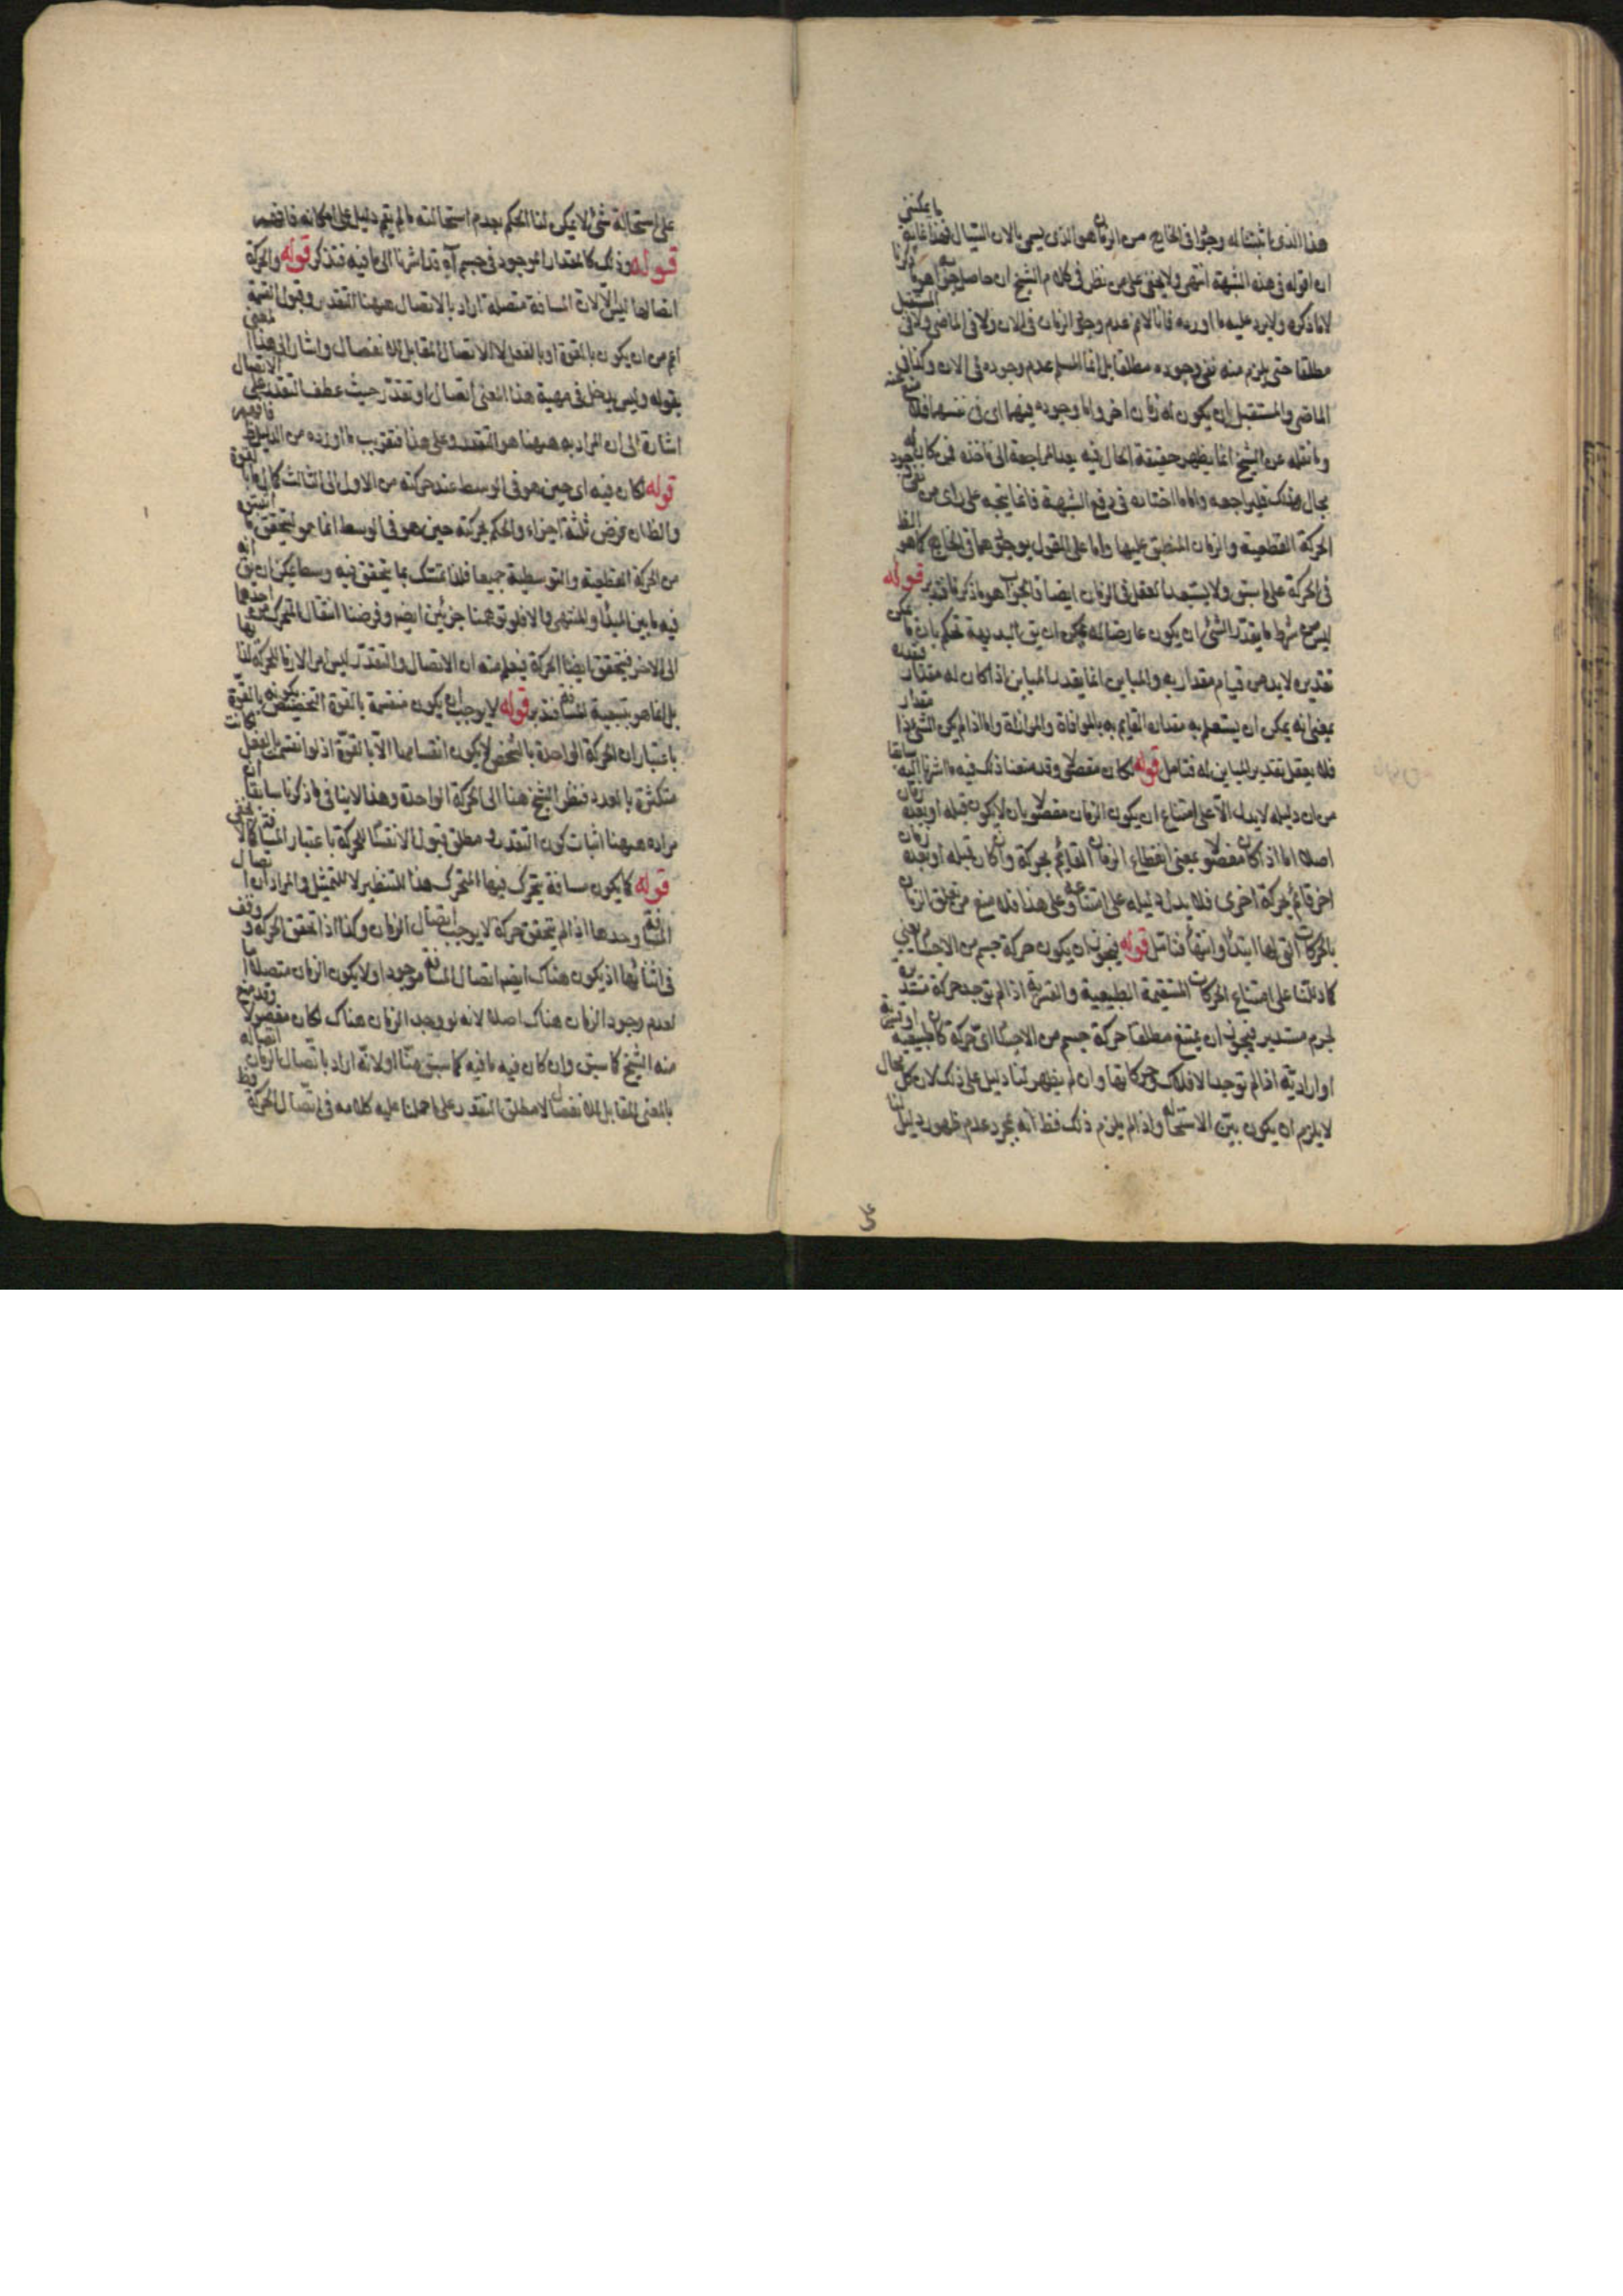 هذا الذى ما ثبتنا له وجودا فى الخارج من الزمان هو الذى يسمى بالان السيال فهذا غاية ما يمكننى
ان اقوله فى هذه الشبهة انتهى ولا يخفى على من نظر فى كلام الشيخ ان حاصل جوابه هو ما ذكرنا
لا ما ذكره ولا يرد عليه ما اورده فانا لا نم عدم وجود الزمان فى الان ولا فى الماضى ولا فى المستقبل
مطلقا حتى يلزم منه نفى وجوده مطلقا بل انما المسلم عدم وجوده فى الان وكذا فى
الماضى والمستقبل ان يكون له زمان اخر واما وجوده فيهما اى فى نفسهما فلا
وما نقله عن الشيخ انما يظهر حقيقة الحال فيه بعد المراجعة الى ماخذه فمن كان له
مجال هناك فليراجعه واما ما اختاره فى دفع الشبهة فانما يتجه على راى من
الحركة القطعية والزمان المنطبق عليها واما على القول بوجودهما فى الخارج كما هو
فى الحركة على ما سبق ولا يستبعد العقل فى الزمان ايضا فالجواب هو ما ذكرنا فتدبر قوله
ليس من شرط ما يقدر الشئ ان يكون عارضا له يمكن ان يق البديهة تحكم بان ما
تقديره لابد من قيام مقدار به والمباين انما يقدر المباين اذا كان له مقدار
بمعنى انه يمكن ان يستعلم به مقداره القايم به بالموافاة والموازاة واما اذا لم يكن الشئ ذا مقدار
فلا يعقل تقدير المباين له فتامل قوله لكان مفصولا وقد منعنا ذلك فيه ما اشرنا اليه سابقا
من ان دليله لا يدل الا على امتناع ان يكون الزمان مفصولا بان لا يكون قبله او بعده زمان
اصلا اما اذا كان مفصولا بمعنى انقطاع الزمان القائم بحركة وان كان قبله او بعده زمان
اخر قائم بحركة اخرى فلا يدل دليله على امتناعه وعلى هذا فلا منع من تعلق الزمان
بالحركات التى لها ابتداء وانتهاء فتامل قوله فيجوز ان يكون حركة جسم من الاجسام يعنى
كما دللنا على امتناع الحركات المستقيمة الطبيعية والقسرية اذا لم توجد حركة مستديرة
لجرم مستدير فيجوز ان يمتنع مطلقا حركة جسم من الاجسام اى حركة كان طبيعية او قسرية
او ارادية اذا لم توجد الافلاك وحركاتها وان لم يظهر لنا دليل على ذلك لان كل محال
لا يلزم ان يكون بين الاستحالة واذا لم يلزم ذلك فظ انه بمجرد عدم ظهور دليل لنا
على استحالة شئ لا يمكن لنا الحكم بعدم استحالته ما لم يتم دليل على امكانه فافهم
قوله وذلك كالمقدار الموجود فى جسم آه قد اشرنا الى ما فيه فتذكر قوله والحركة
اتصالها ليس الا لان المسافة متصلة اراد بالاتصال ههنا التقدير وقبول القسمة
اعم من ان يكون بالقوة او بالفعل لا الاتصال المقابل للانفصال واشار الى هذا المعنى
بقوله وليس يدخل فى مهية هذا المعنى اتصال او تقدر حيث عطف التقدر على الاتصال
اشارة الى ان المراد به ههنا هو التقدر وعلى هذا فتقريب ما اورده من الدليل ظ فافهم
قوله لكان فيه اى حين هو فى الوسط عند حركته من الاول الى الثالث كمال ما بالقوة
والظ ان فرض ثلثة اجزاء والحكم بحركته حين هو فى الوسط انما هو ليتحقق
من الحركة القطعية والتوسطية جميعا فلذا تمسك بما يتحقق فيه وسط يمكن ان يق انه
فيه ما بين المبدأ والمنتهى والا فلو توهمنا جزئين ايضا وفرضنا انتقال المتحرك من احدهما
الى الاخر فيتحقق ايضا الحركة فيعلم منه ان الاتصال والتقدر ليس امرا لازما للحركة لذاتها
بل انما هو بتبعية المسافة فتدبر قوله لا يوجب ان يكون منقسمة بالقوة التخصيص بكونه بالقوة
باعتبار ان الحركة الواحدة بالشخص لا يكون انقسامها الا بالقوة اذ لو انقسمت بالفعل كانت
متكثرة بالعدد فنظر الشيخ هنا الى الحركة الواحدة وهذا لا ينافى ما ذكرنا سابقا ان
مراده ههنا اثبات كون التقدر ومطلق قبول الانقسام للحركة باعتبار المسافة
قوله كما يكون مسافة يتحرك فيها المتحرك هذا للتنظير لا للتمثيل والمراد ان اتصال
المسافة وحدها اذا لم يتحقق حركة لا يوجب اتصال الزمان وكذا اذا تحقق الحركة ووقف
فى اثنائها اذ يكون هناك ايضا اتصال المسافة موجودا ولا يكون الزمان متصلا اما
لعدم وجود الزمان هناك اصلا لانه لو وجد الزمان هناك لكان مفصولا وقد منع
منه الشيخ كما سبق وان كان فيه ما فيه كما سبق منا او لانه اراد باتصال الزمان اتصاله
بالمعنى المقابل للانفصال لا مطلق التقدر على ما حملنا عليه كلامه فى اتصال الحركة